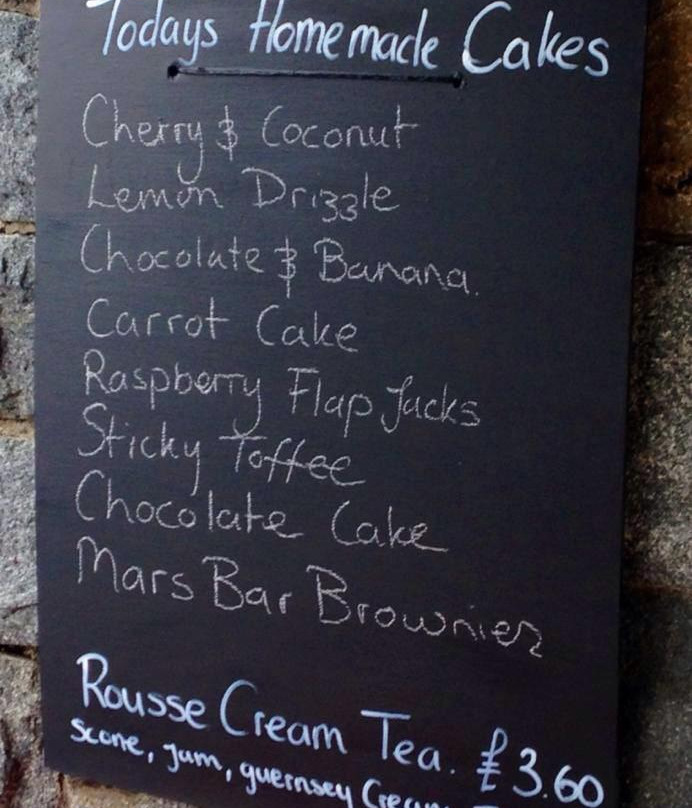 Todays Homemade Cakes
Cherry & Coconut
Lemon Drizzle
Chocolate & Banana.
Carrot Cake
Raspberry Flap Jacks
Sticky Toffee
Chocolate Cake
Mars Bar Brownies
Rousse Cream Tea. £3.60
Scone, jam, guernsey Cream